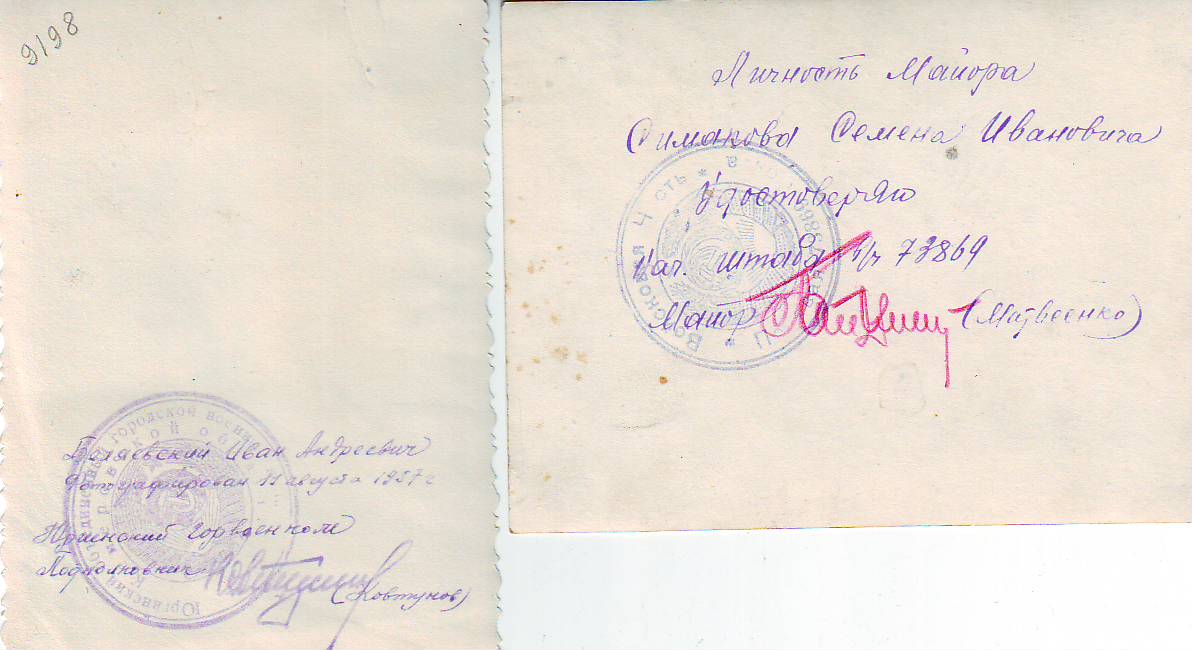 9198
Иван Андреевич
Фотографирован 11 августа 1957 г
Юргинский Горвоенком
Подполковник
(Ковтунов)
Юргинский городской военн
Личность Майора
Симакова Семена Ивановича
Удостоверяю
Нач. штаба в/ч 73869
Майор (Матвеенко)
Войсковая Часть *